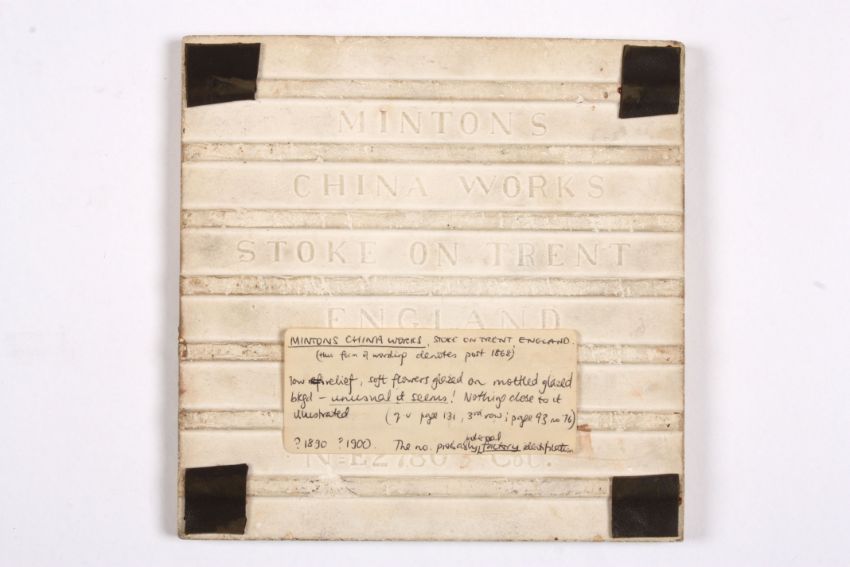 MINTONS
CHINA WORKS
STOKE ON TRENT
ENGLAND
MINTONS CHINA WORKS, STOKE ON TRENT, ENGLAND.
(this form of wording denotes post 1868)
low relief, soft flowers glazed on mottled glazed
bkgd – unusual it seems! Nothing close to it
illustrated (q v page 131, 3rd row; page 93, no 76)
? 1890 ? 1900. The no. probably internal factory identification